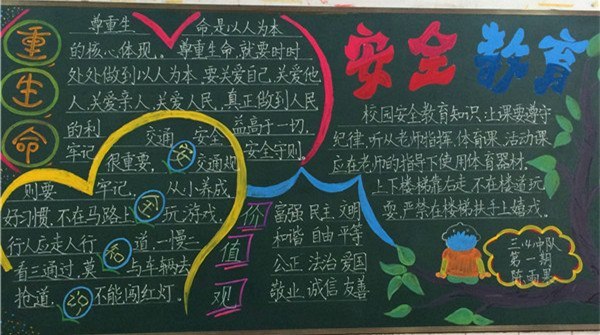 重
生
命
尊重生 命是以人为本
的核心体现。尊重生命,就要时时
处处做到以人为本,要关爱自己,关爱他
人,关爱亲人,关爱人民,真正做到人民
的利 益高于一切。
交通 安全
牢记 很重要, 交通
安全守则。
则要 牢记, 从小养成
好习惯,不在马路上 玩游戏,
行人应走人行 道,一慢
看三通过,莫 与车辆去
抢道, 不能闯红灯。
安全教育
校园安全教育知识:上课要遵守
纪律,听从老师指挥,体育课、活动课
应在老师的指导下使用体育器材。
上下楼梯靠右走,不在楼道玩
耍,严禁在楼梯扶手上嬉戏。
价值观
富强 民主 文明
和谐 自由 平等
公正 法治 爱国
敬业 诚信 友善
中队
第一期